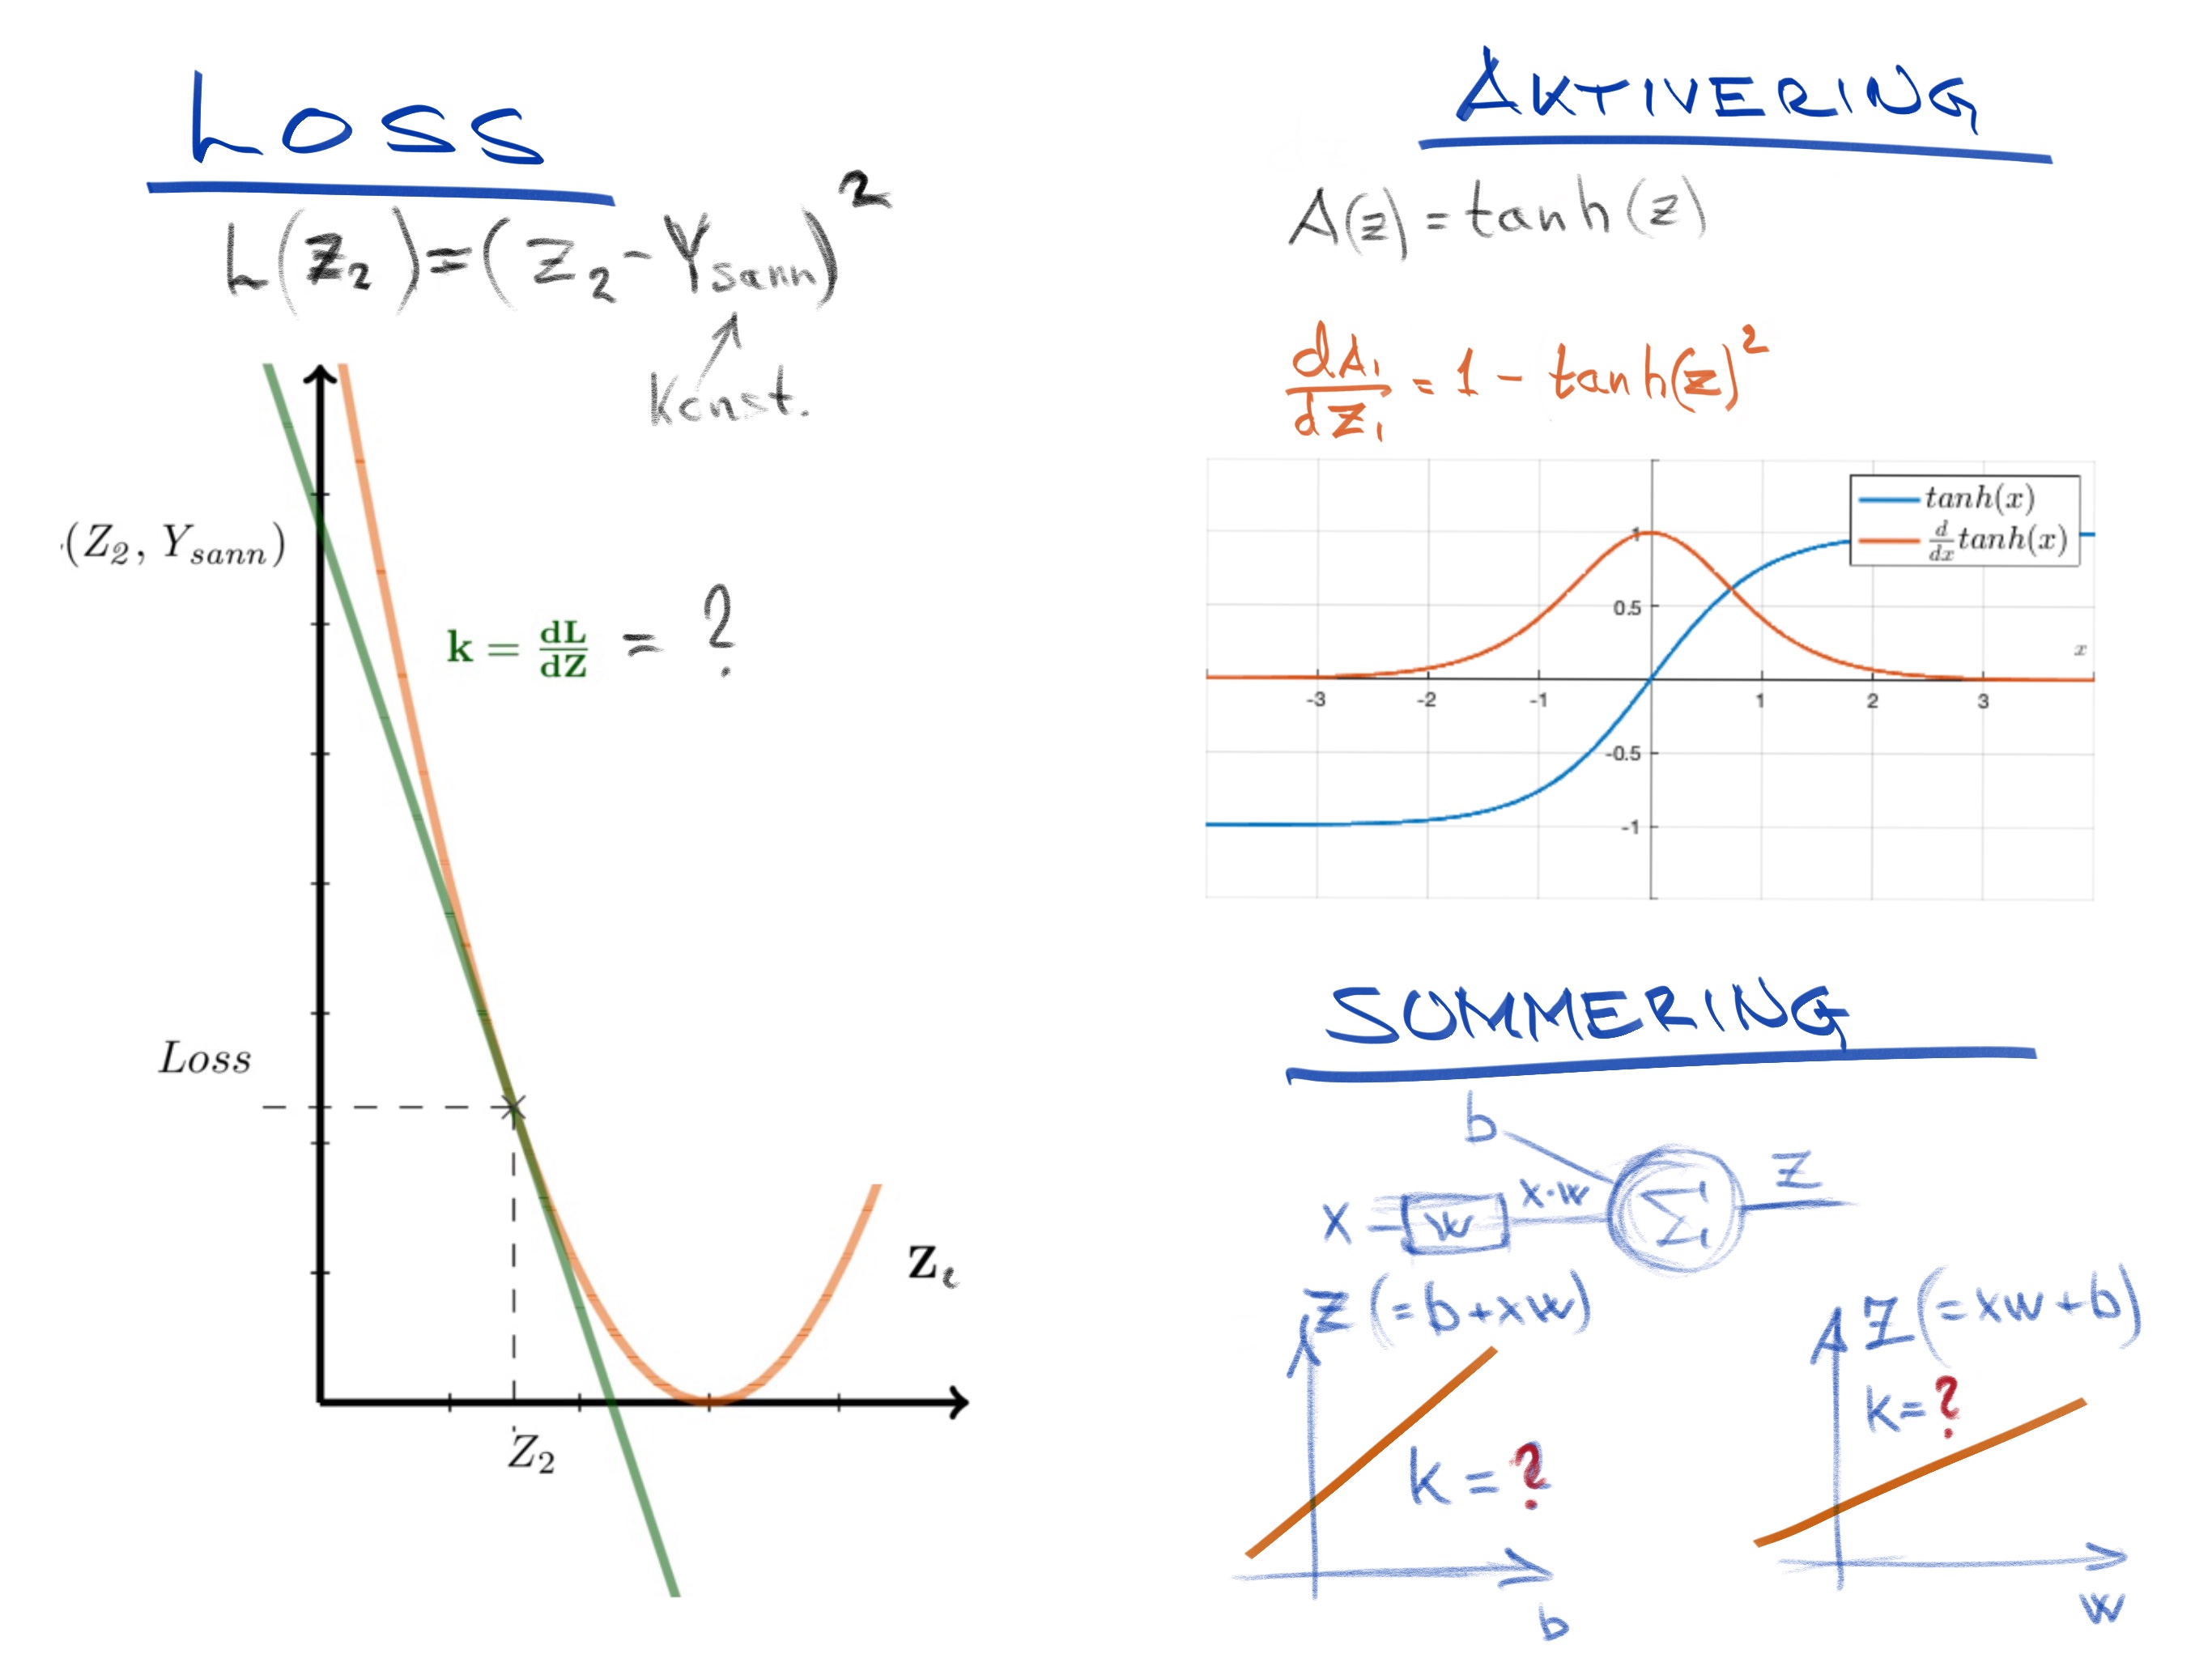 Loss
L(Z₂)=(Z₂-Ysann)²
Konst.
(Z₂, Ysann)
k = dL/dZ = ?
Loss
Z₂
AKTIVERING
A(z) = tanh(z)
dA₁/dZ₁ = 1 - tanh(z)²
tanh(x)
d/dx tanh(x)
1
0.5
x
-3 -2 -1 1 2 3
-0.5
-1
SUMMERING
b
x w x·w Σ z
Z (=b+xw)
k = ?
b
Z (=xw+b)
k = ?
w